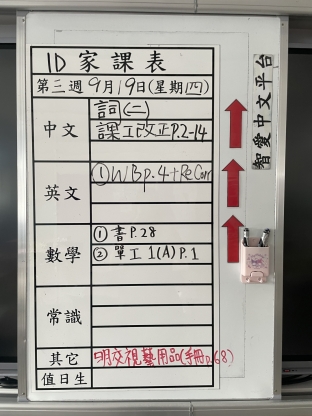 1D 家課表
第三週 9月19日(星期四)
中文
詞(二)
課工改正P.2-14
英文
①WBp.4+ReCorr
數學
①書P.28
②單工1(A)P.1
常識
其它
明交視藝用品(手冊p.68)
值日生
智愛中文平台